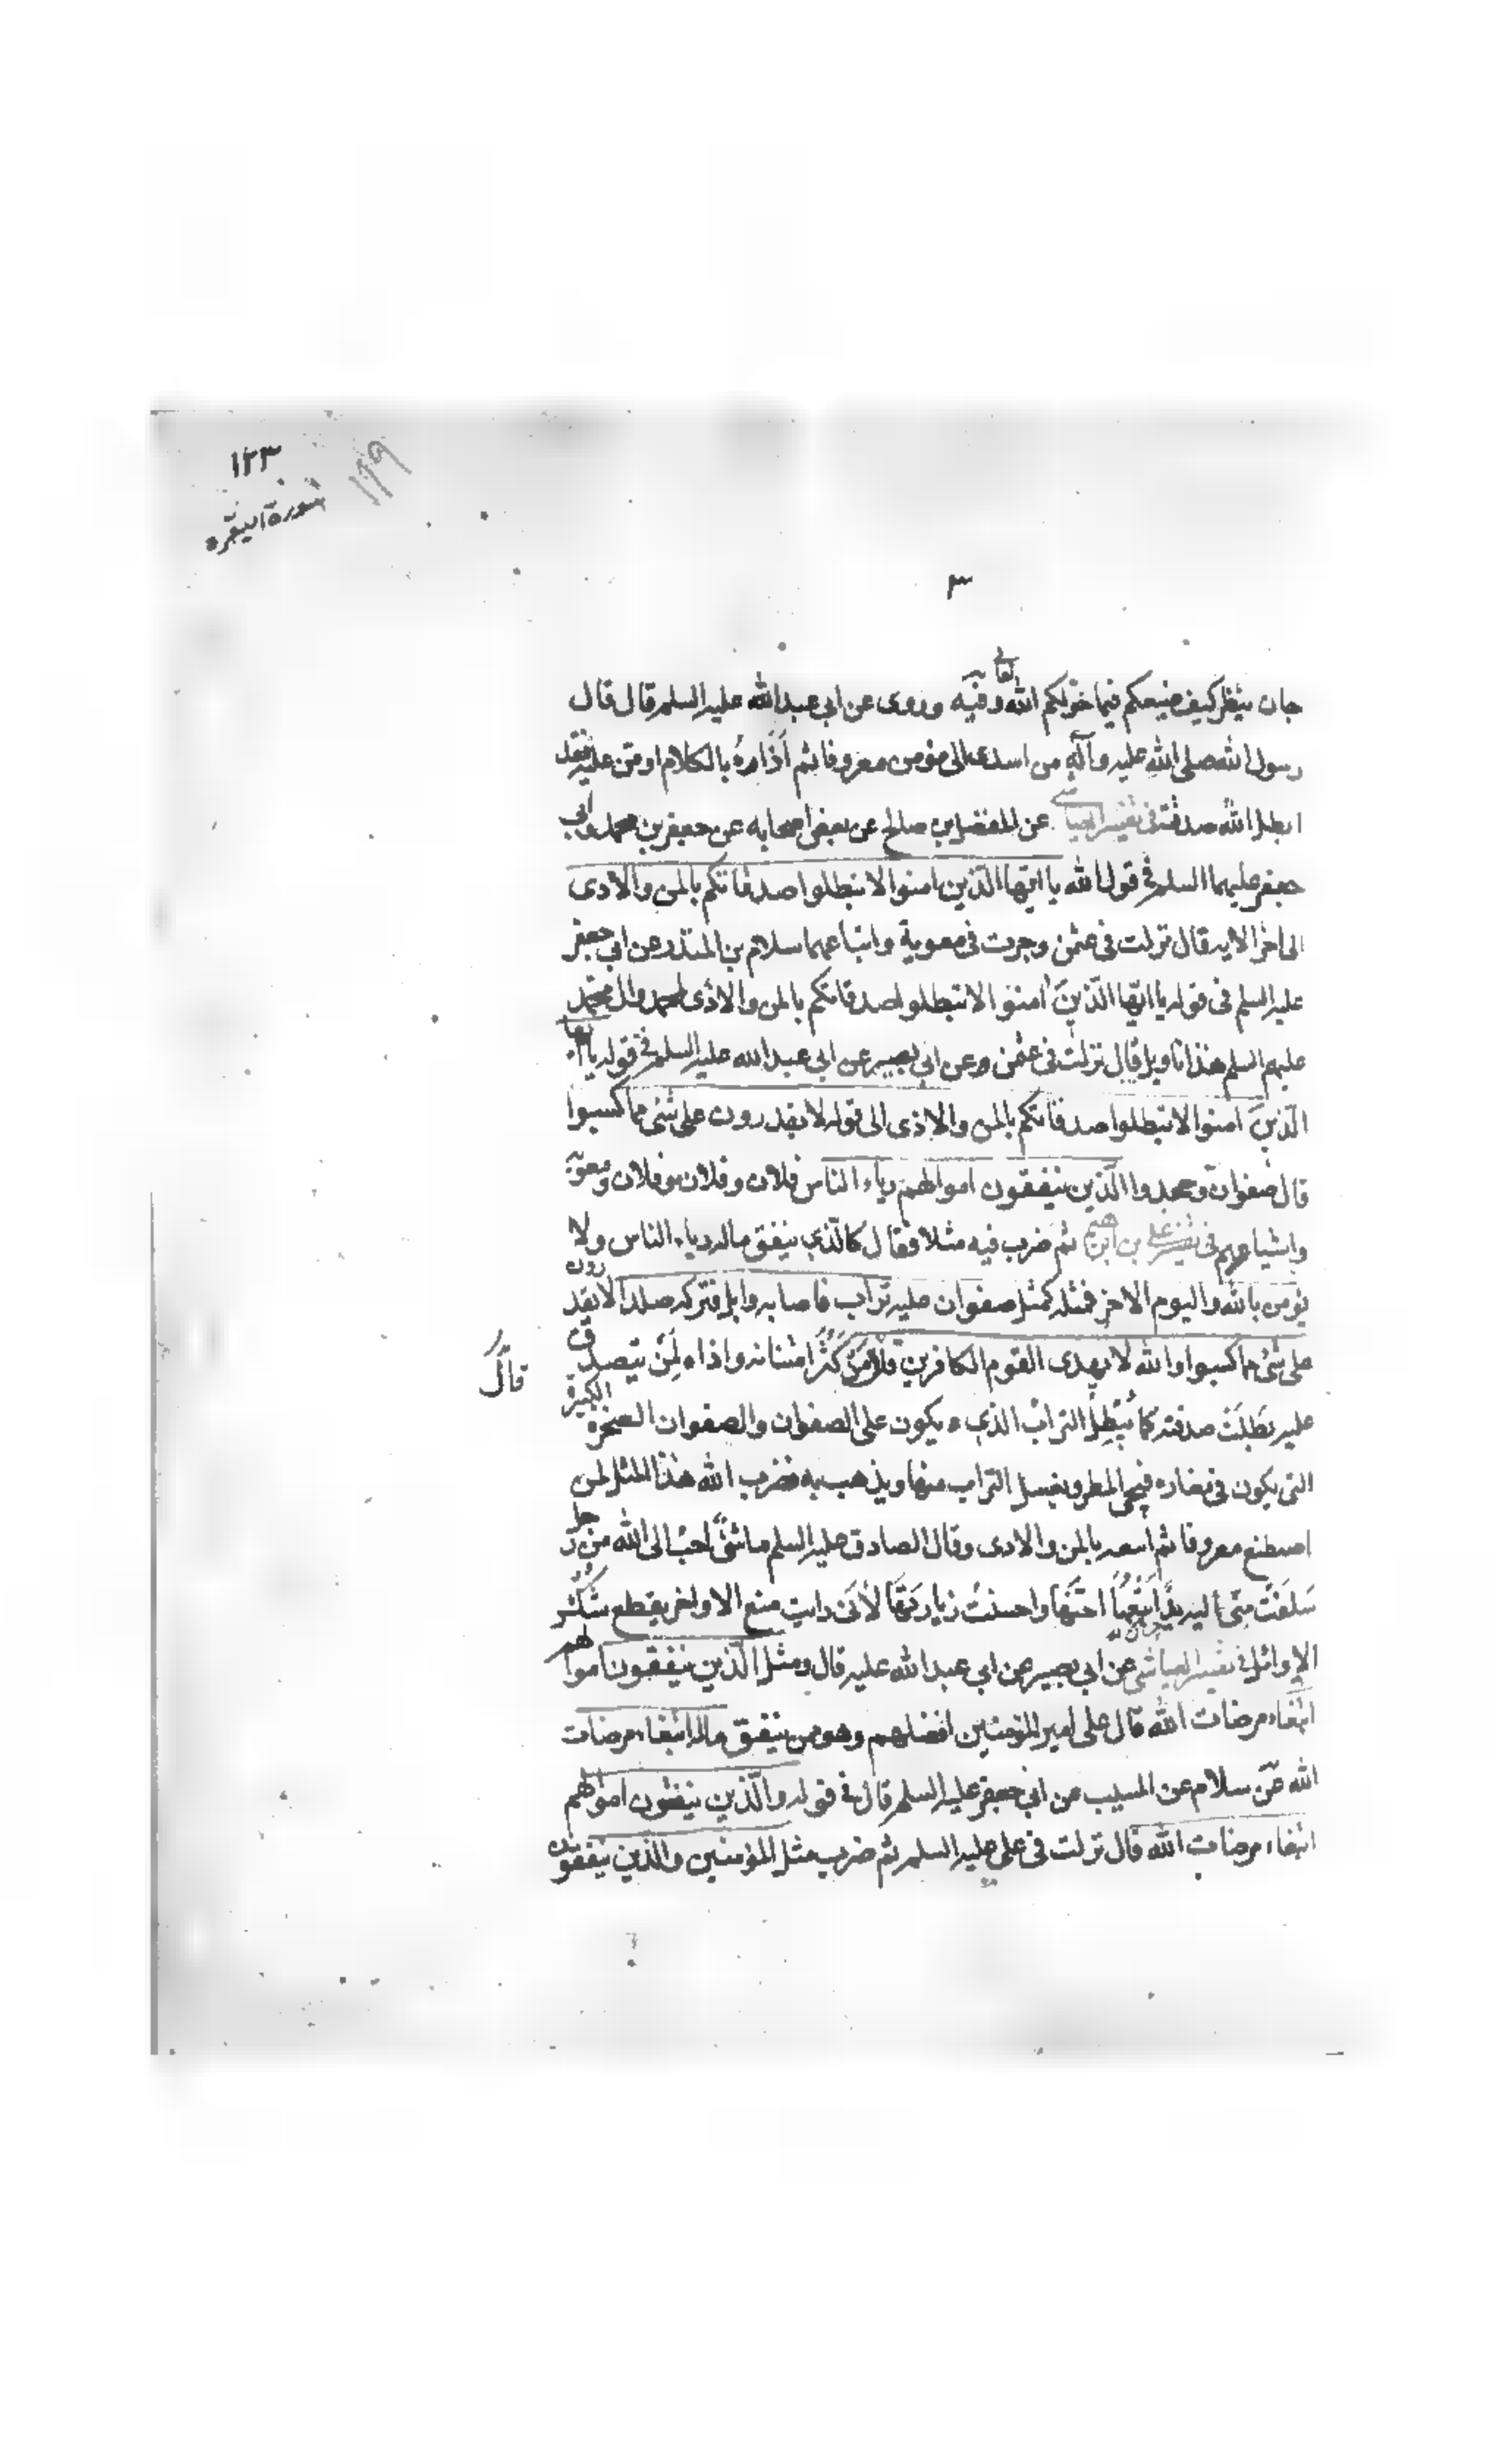 ١٢٣
١١٩
سورة البقره
٣
جان ينظر كيف صنيعكم فيما خولكم الله تعالى وفيه وروى عن ابي عبدالله عليه السلم قال قال
رسول الله صلى الله عليه وآله من اسدى الى مؤمن معروفا ثم آذاه بالكلام او من عليه فقد
ابطل الله صدقته في تفسير العياشي عن المفضل بن صالح عن بعض اصحابه عن جعفر بن محمد وابي
جعفر عليهما السلم في قول الله يا ايها الذين امنوا لا تبطلوا صدقاتكم بالمن والاذى
الى اخر الايه قال نزلت في عثمن وجرت في معوية واتباعهما سلام بن المنذر عن ابي جعفر
عليه السلم في قوله يا ايها الذين امنوا لا تبطلوا صدقاتكم بالمن والاذى لمحمد وال محمد
عليهم السلم هذا تاويل قال نزلت في عثمن وعن ابي بصير عن ابي عبدالله عليه السلم في قوله يا ايها
الذين امنوا لا تبطلوا صدقاتكم بالمن والاذى الى قوله لا يقدرون على شئ مما كسبوا
قال صفوان وحجر والذين ينفقون اموالهم رياء الناس فلان وفلان وفلان ومعوية
واشياعهم في تفسير على بن ابرهيم ثم ضرب فيه مثلا فقال كالذي ينفق ماله رياء الناس ولا
يؤمن بالله واليوم الاخر فمثله كمثل صفوان عليه تراب فاصابه وابل فتركه صلدا لا يقدرون
على شئ مما كسبوا والله لا يهدى القوم الكافرين قال من كثر امتنانه واذاه لمن يتصدق
قال
عليه بطلت صدقته كما يبطل التراب الذي يكون على الصفوان والصفوان الصخره الكبيرة
التي يكون في مفازه فيجئ المطر ويغسل التراب منها ويذهب به فضرب الله هذا المثل لمن
اصطنع معروفا ثم اتبعه بالمن والاذى وقال الصادق عليه السلم ما شئ احب الى الله من رجل
سلفت منى اليه يد اتبعتها اختها واحسنت لانى رايت منع الاواخر يقطع شكر
الاوائل في تفسير العياشي عن ابي بصير عن ابي عبد الله عليه قال ومثل الذين ينفقون اموالهم
ابتغاء مرضات الله قال على امير المؤمنين افضلهم وهو من ينفق ماله ابتغاء مرضات
الله عن سلام عن المسيب عن ابي جعفر عليه السلم قال في قوله والذين ينفقون اموالهم
ابتغاء مرضات الله قال نزلت في على عليه السلم ثم ضرب مثل المؤمنين والذين ينفقون